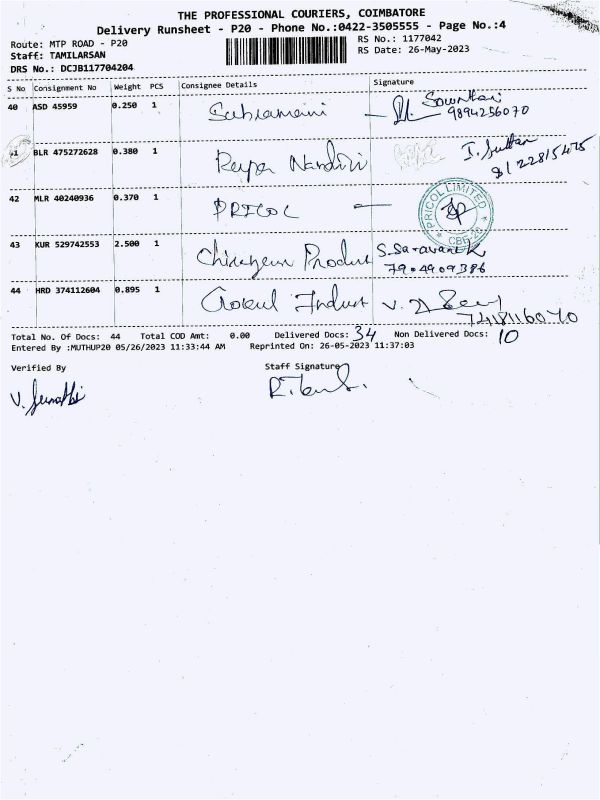 THE PROFESSIONAL COURIERS, COIMBATORE
Delivery Runsheet - P20 - Phone No.:0422-3505555 - Page No.:4
Route: MTP ROAD - P20
RS No.: 1177042
Staff: TAMILARSAN
RS Date: 26-May-2023
DRS No.: DCJB117704204
S No Consignment No Weight PCS Consignee Details Signature
40 ASD 45959 0.250 1 Subramani
9894256070
41 BLR 475272628 0.380 1
42 MLR 40240936 0.370 1 PRICOL
PRICOL LIMITED
43 KUR 529742553 2.500 1 S. Saravana K
7904909386
44 HRD 374112604 0.895 1
7418116070
Total No. Of Docs: 44 Total COD Amt: 0.00 Delivered Docs: 34 Non Delivered Docs: 10
Entered By :MUTHUP20 05/26/2023 11:33:44 AM Reprinted On: 26-05-2023 11:37:03
Verified By
Staff Signature